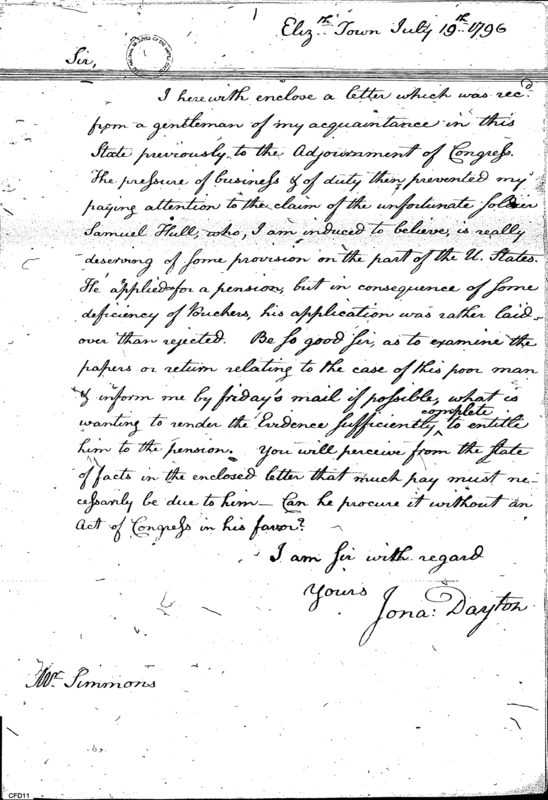 Eliz.th Town July 19.th 1796
Sir,
I herewith enclose a letter which was rec.d
from a gentleman of my acquaintance in this
State previously to the Adjournment of Congress.
The pressure of business & of duty then prevented my
paying attention to the claim of the unfortunate soldier
Samuel Hull, who, I am induced to believe, is really
deserving of some provision on the part of the U. States.
He applied for a pension, but in consequence of some
deficiency of Vouchers, his application was rather laid
over than rejected. Be so good sir, as to examine the
papers or return relating to the case of this poor man
& inform me by friday's mail if possible, what is
wanting to render the Evidence sufficiently complete to entitle
him to the pension. You will perceive from the state
of facts in the enclosed letter that much pay must ne-
cessarily be due to him — Can he procure it without an
Act of Congress in his favor?
I am Sir with regard
Yours
Jona: Dayton
Mr. Simmons
CFD11